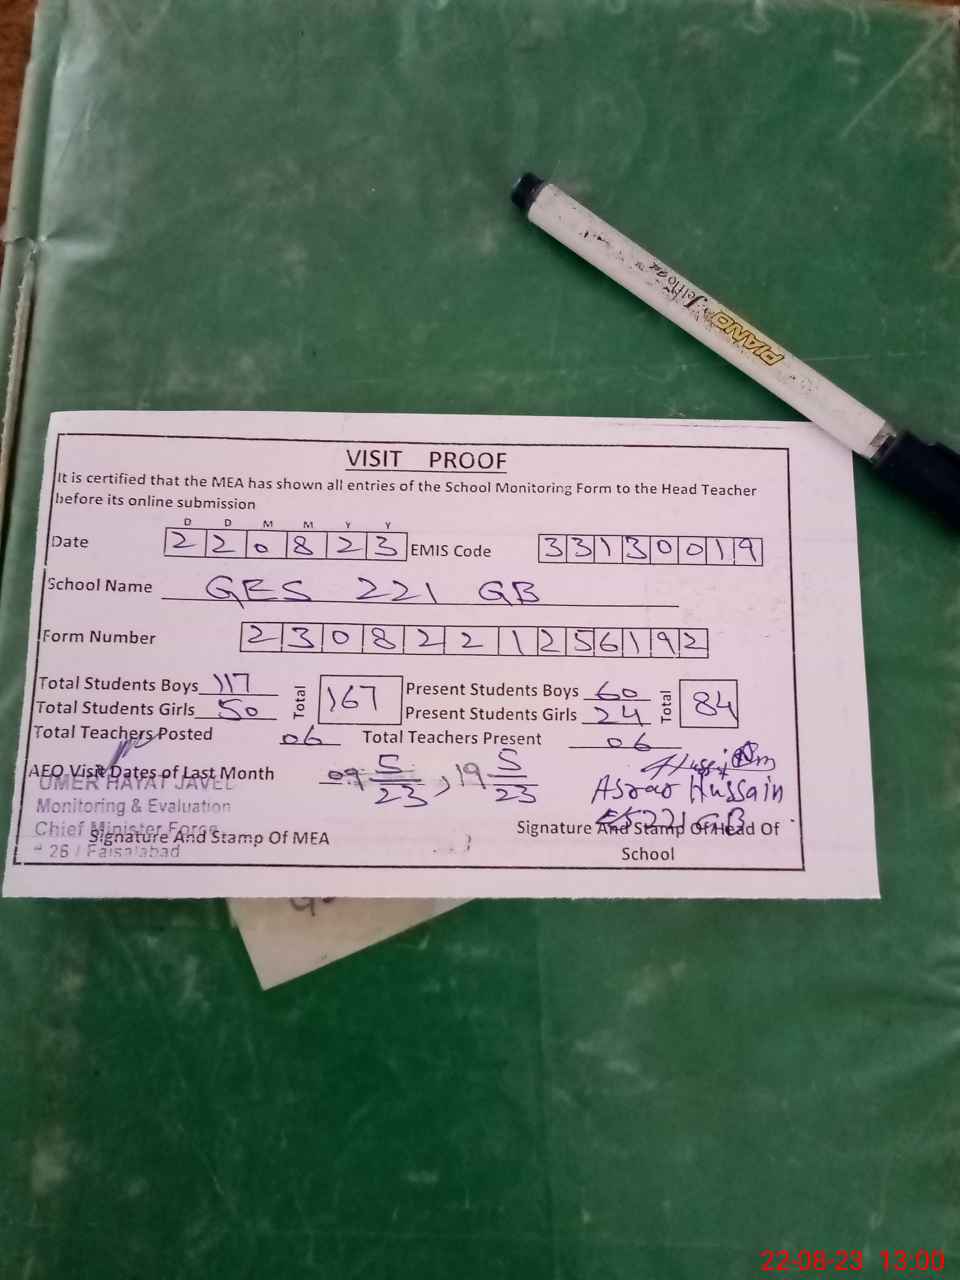 PIANO Jelfloat
VISIT PROOF
It is certified that the MEA has shown all entries of the School Monitoring Form to the Head Teacher
before its online submission
D D M M Y Y
Date 2 2 0 8 2 3 EMIS Code 3 3 1 3 0 0 1 9
School Name GES 221 GB
Form Number 2 3 0 8 2 2 1 2 5 6 1 9 2
Total Students Boys 117 Total 167 Present Students Boys 60 Total 84
Total Students Girls 50 Present Students Girls 24
Total Teachers Posted 06 Total Teachers Present 06
AEO Visit Dates of Last Month 09 5/23, 19 5/23
Asrar Hussain
UMER HAYAT JAVED
Monitoring & Evaluation
221 GB
Chief Minister Force
Signature And Stamp Of MEA Signature And Stamp Of Head Of
School
26 / Faisalabad
22-08-23 13:00